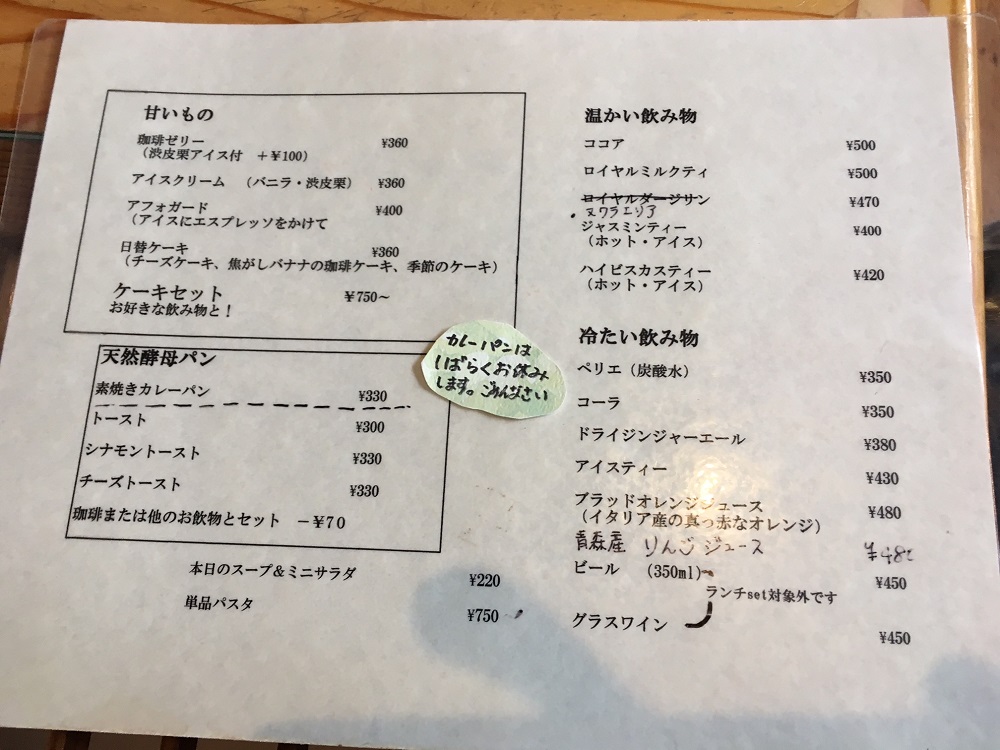 甘いもの
珈琲ゼリー ¥360
（渋皮栗アイス付 ＋￥100）
アイスクリーム （バニラ・渋皮栗） ¥360
アフォガード ¥400
（アイスにエスプレッソをかけて
日替ケーキ ¥360
（チーズケーキ、焦がしバナナの珈琲ケーキ、季節のケーキ）
ケーキセット ￥750～
お好きな飲み物と！
カレーパンは
しばらくお休み
します。ごめんなさい
天然酵母パン
素焼きカレーパン ¥330
トースト ¥300
シナモントースト ¥330
チーズトースト ¥330
珈琲または他のお飲物とセット －￥70
本日のスープ＆ミニサラダ ¥220
単品パスタ ¥750
温かい飲み物
ココア ¥500
ロイヤルミルクティ ¥500
ロイヤルダージサン ¥470
・ヌワラエリア
ジャスミンティー ¥400
（ホット・アイス）
ハイビスカスティー ¥420
（ホット・アイス）
冷たい飲み物
ペリエ（炭酸水） ¥350
コーラ ¥350
ドライジンジャーエール ¥380
アイスティー ¥430
ブラッドオレンジジュース ¥480
（イタリア産の真っ赤なオレンジ）
青森産 りんごジュース ¥480
ビール （350ml） ¥450
ランチset対象外です
グラスワイン ¥450